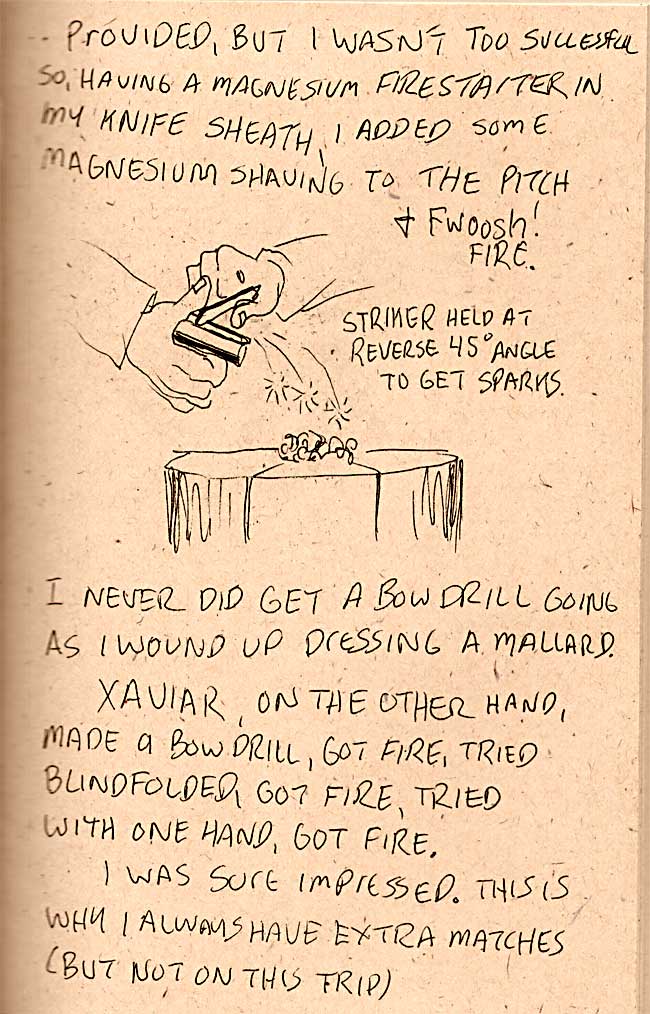 -- PROVIDED, BUT I WASN'T TOO SUCCESSFUL
SO, HAVING A MAGNESIUM FIRESTARTER IN
MY KNIFE SHEATH, I ADDED SOME
MAGNESIUM SHAVING TO THE PITCH
& Fwoosh!
FIRE.
STRIKER HELD AT
REVERSE 45° ANGLE
TO GET SPARKS.
I NEVER DID GET A BOW DRILL GOING
AS I WOUND UP DRESSING A MALLARD.
XAVIAR, ON THE OTHER HAND,
MADE A BOW DRILL, GOT FIRE, TRIED
BLINDFOLDED, GOT FIRE, TRIED
WITH ONE HAND, GOT FIRE.
I WAS SURE IMPRESSED. THIS IS
WHY I ALWAYS HAVE EXTRA MATCHES
(BUT NOT ON THIS TRIP)